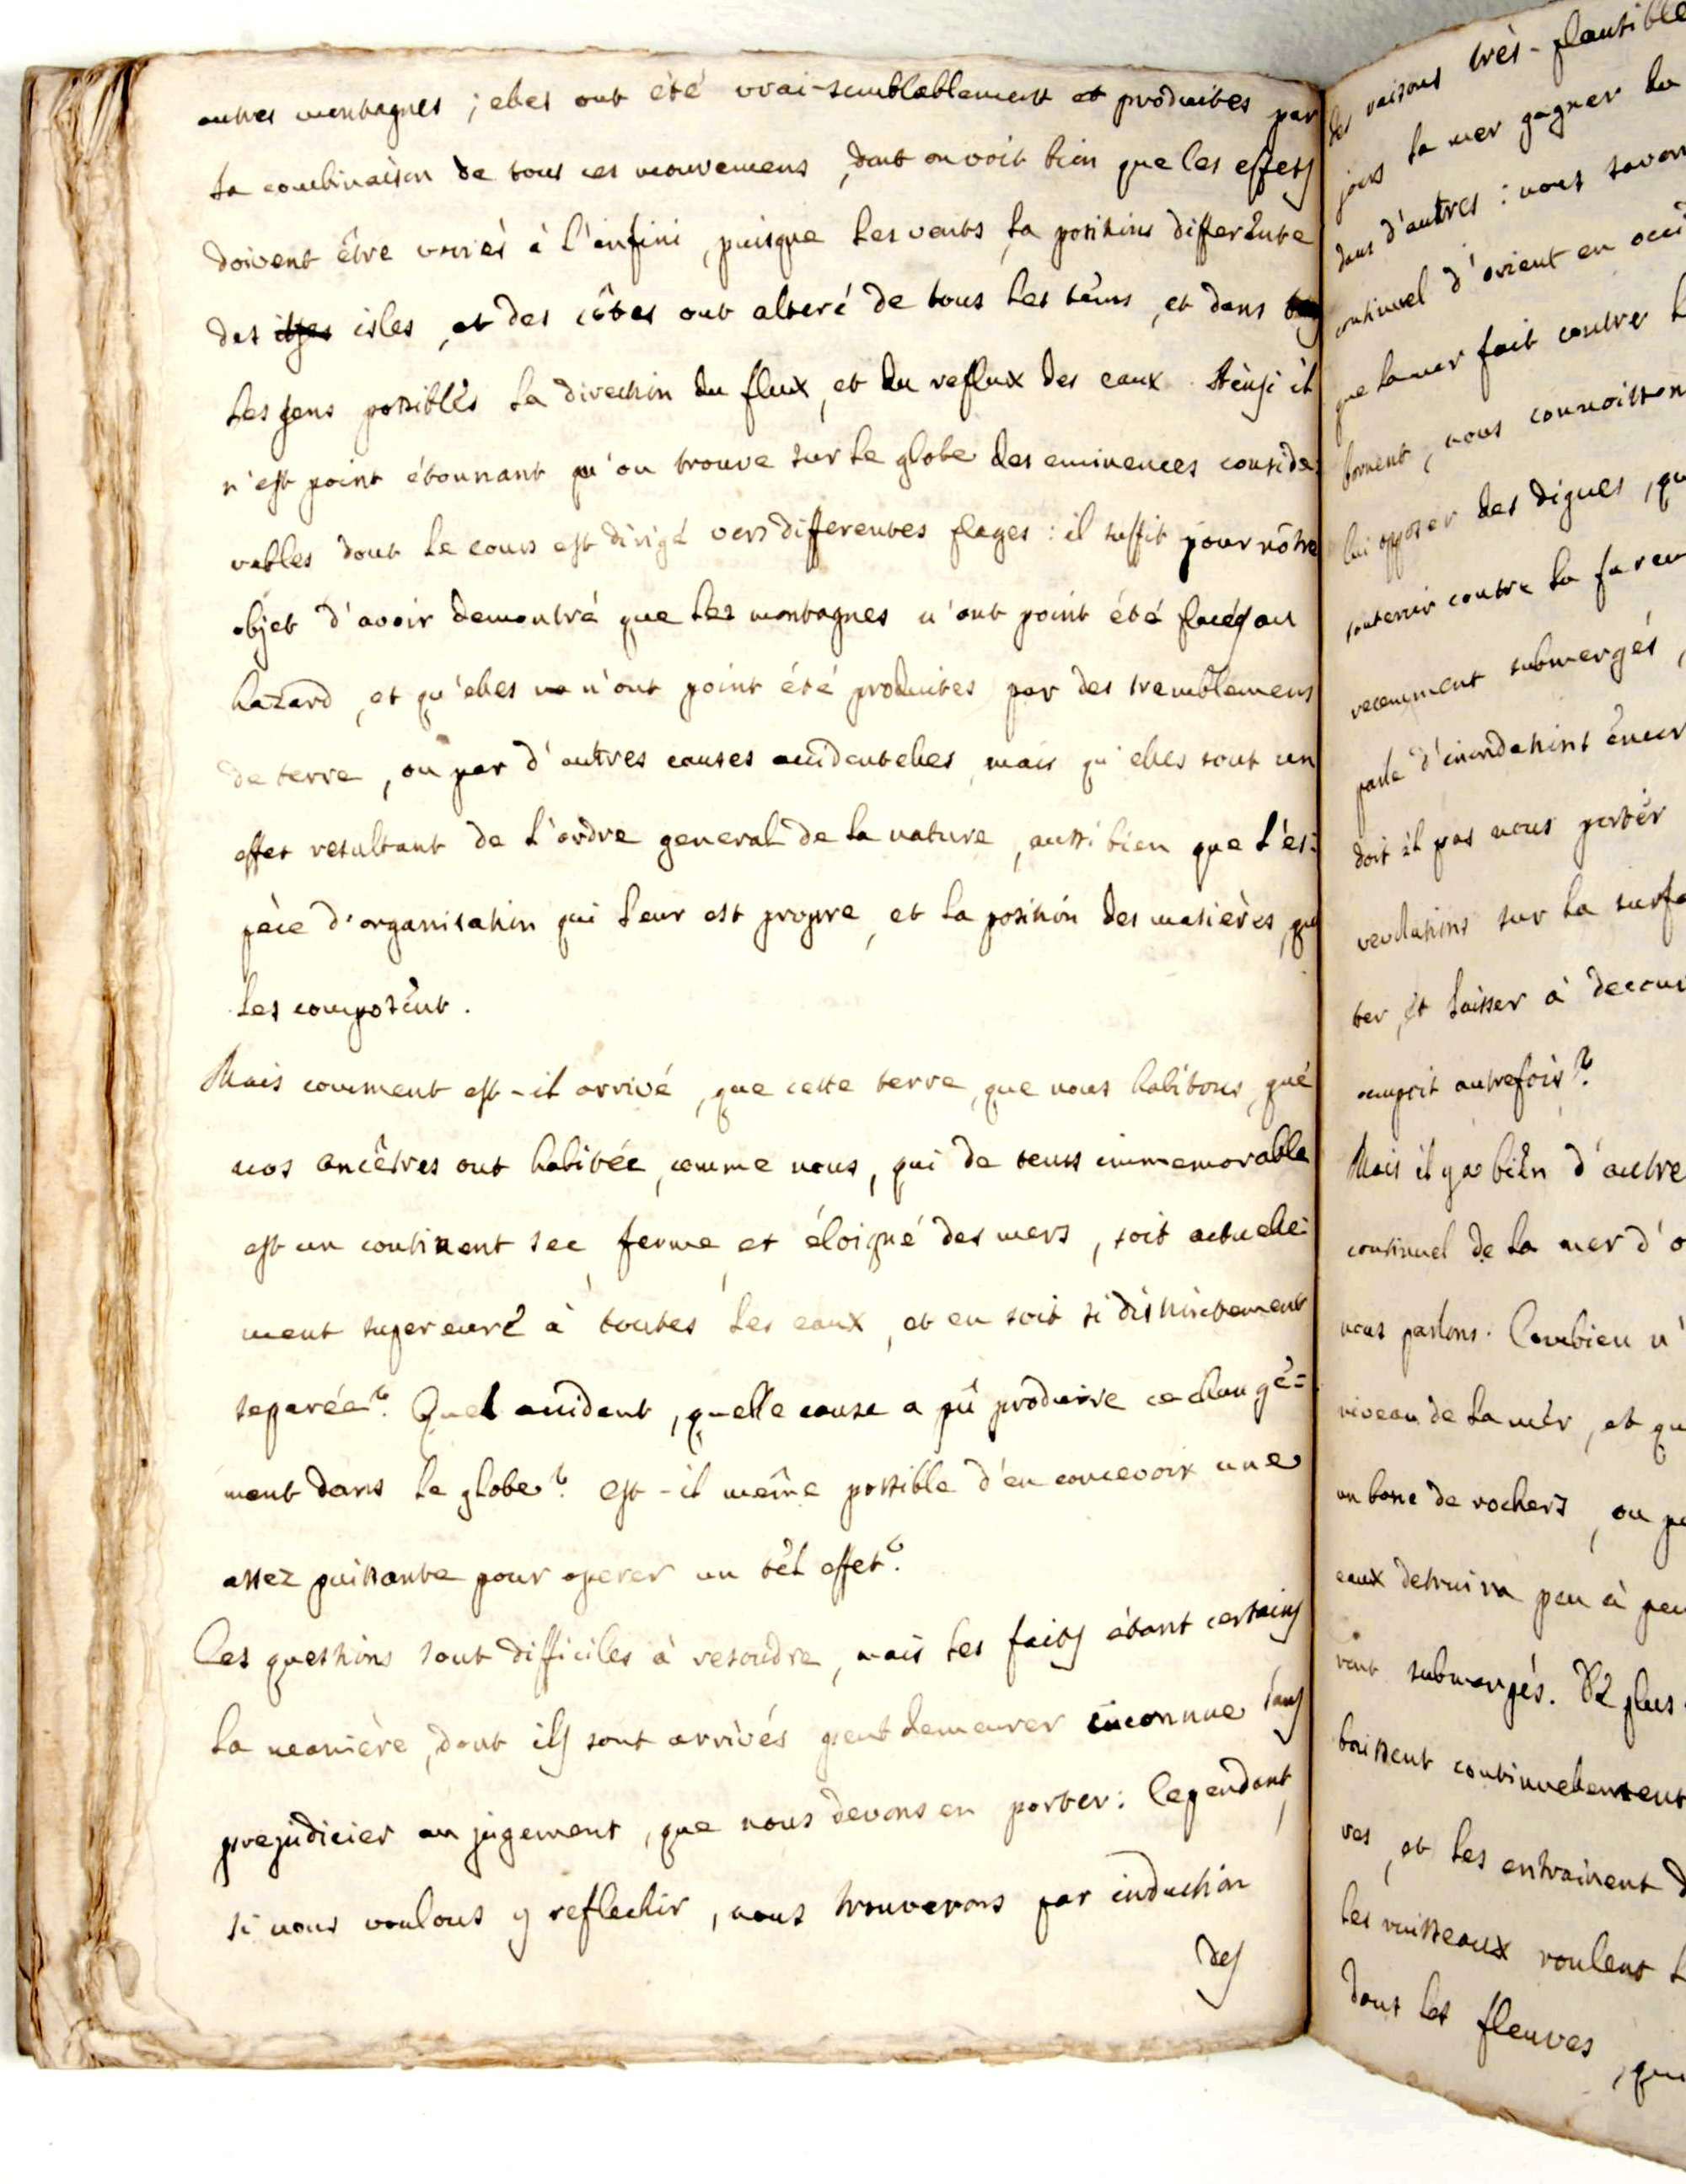 autres montagnes ; elles ont été vrai-semblablement et produites par
la combinaison de tous ces mouvemens , dont on voit bien que les effets
doivent être variés à l'infini , puisque les vents , la position differente
des isles , et des côtes ont alteré de tous les tems , et dans tous
les sens possibles la direction du flux , et du reflux des eaux . Ainsi il
n'est point étonnant qu'on trouve sur le globe des eminences conside=
rables dont le cours est dirigé vers differentes plages : il suffit pour nôtre
objet d'avoir demontré que les montagnes n'ont point été placés au
hazard , et qu'elles ne n'ont point été produites par des tremblemens
de terre , ou par d'autres causes accidentelles , mais qu'elles sont un
effet resultant de l'ordre general de la nature , aussi bien que l'es=
pèce d'organisation qui leur est propre , et la position des matières , qui
les composent .
Mais comment est-il arrivé , que cette terre , que nous habitons , que
nos ancêtres ont habitée , comme nous , qui de tems immemorable
est un continent sec ferme et éloigné des mers , soit actuelle=
ment superieure à toutes les eaux , et en soit si distinctement
separée ? Quel accident , quelle cause a pû produire ce change=
ment dans le globe ? est-il même possible d'en concevoir une
assez puissante pour operer un tel effet ?
Ces questions sont difficiles à resoudre , mais les faits étant certains
la manière , dont ils sont arrivés peut demeurer inconnue sans
prejudicier au jugement , que nous devons en porter : Cependant ,
si nous voulons y reflechir , nous trouverons par induction
des
des raisons très-plausible
jours la mer gagner du
dans d'autres : nous savon
continuel d'orient en occi
que la mer fait contre l
bornent , nous connoisson
lui opposer des digues , qu
soutenir contre la fureu
recemment submergés ,
parle d'inondations encor
doit il pas nous porter
revolutions sur la surfa
ter , et laisser à decouv
occupoit autrefois ?
Mais il y a bien d'autre
continuel de la mer d'o
nous parlons . Combien n'
niveau de la mer , et qu
un banc de rochers , ou pa
eaux detruira peu à peu
ront submergés . De plus
baissent continuellement
res , et les entrainent d
les ruisseaux roulent l
dont les fleuves , qui